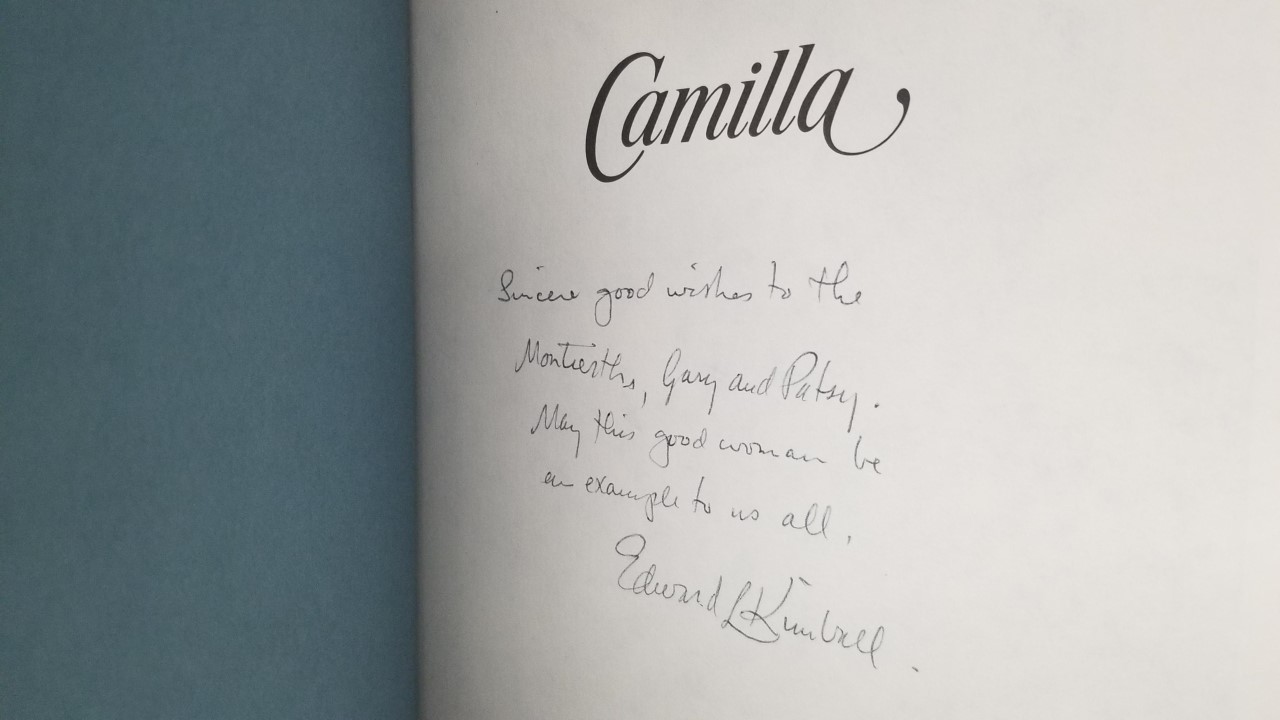 Camilla
Sincere good wishes to the
Montierths, Gary and Patsy.
May this good woman be
an example to us all.
Edward L Kimball